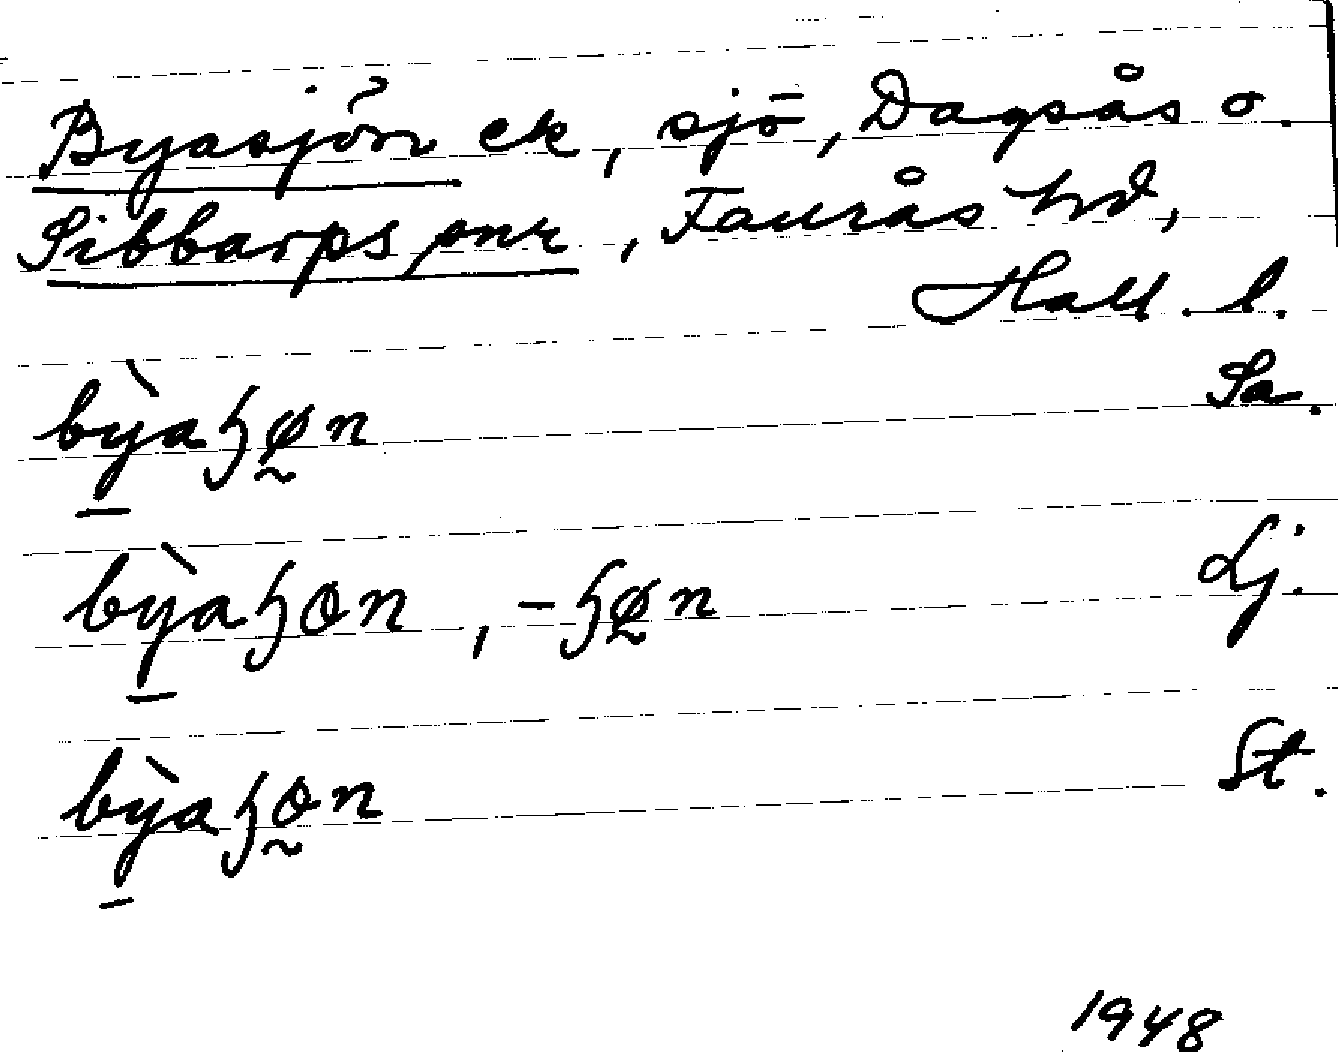 Byasjön ek, sjö, Dagsås o.
Sibbarps snr, Faurås hd,
Hall. l.
bỳ̠aɧø̰n Sa.
bỳ̠aɧɵn, -ɧø̰n Lj.
bỳ̠aɧɵ̰n St.
1948